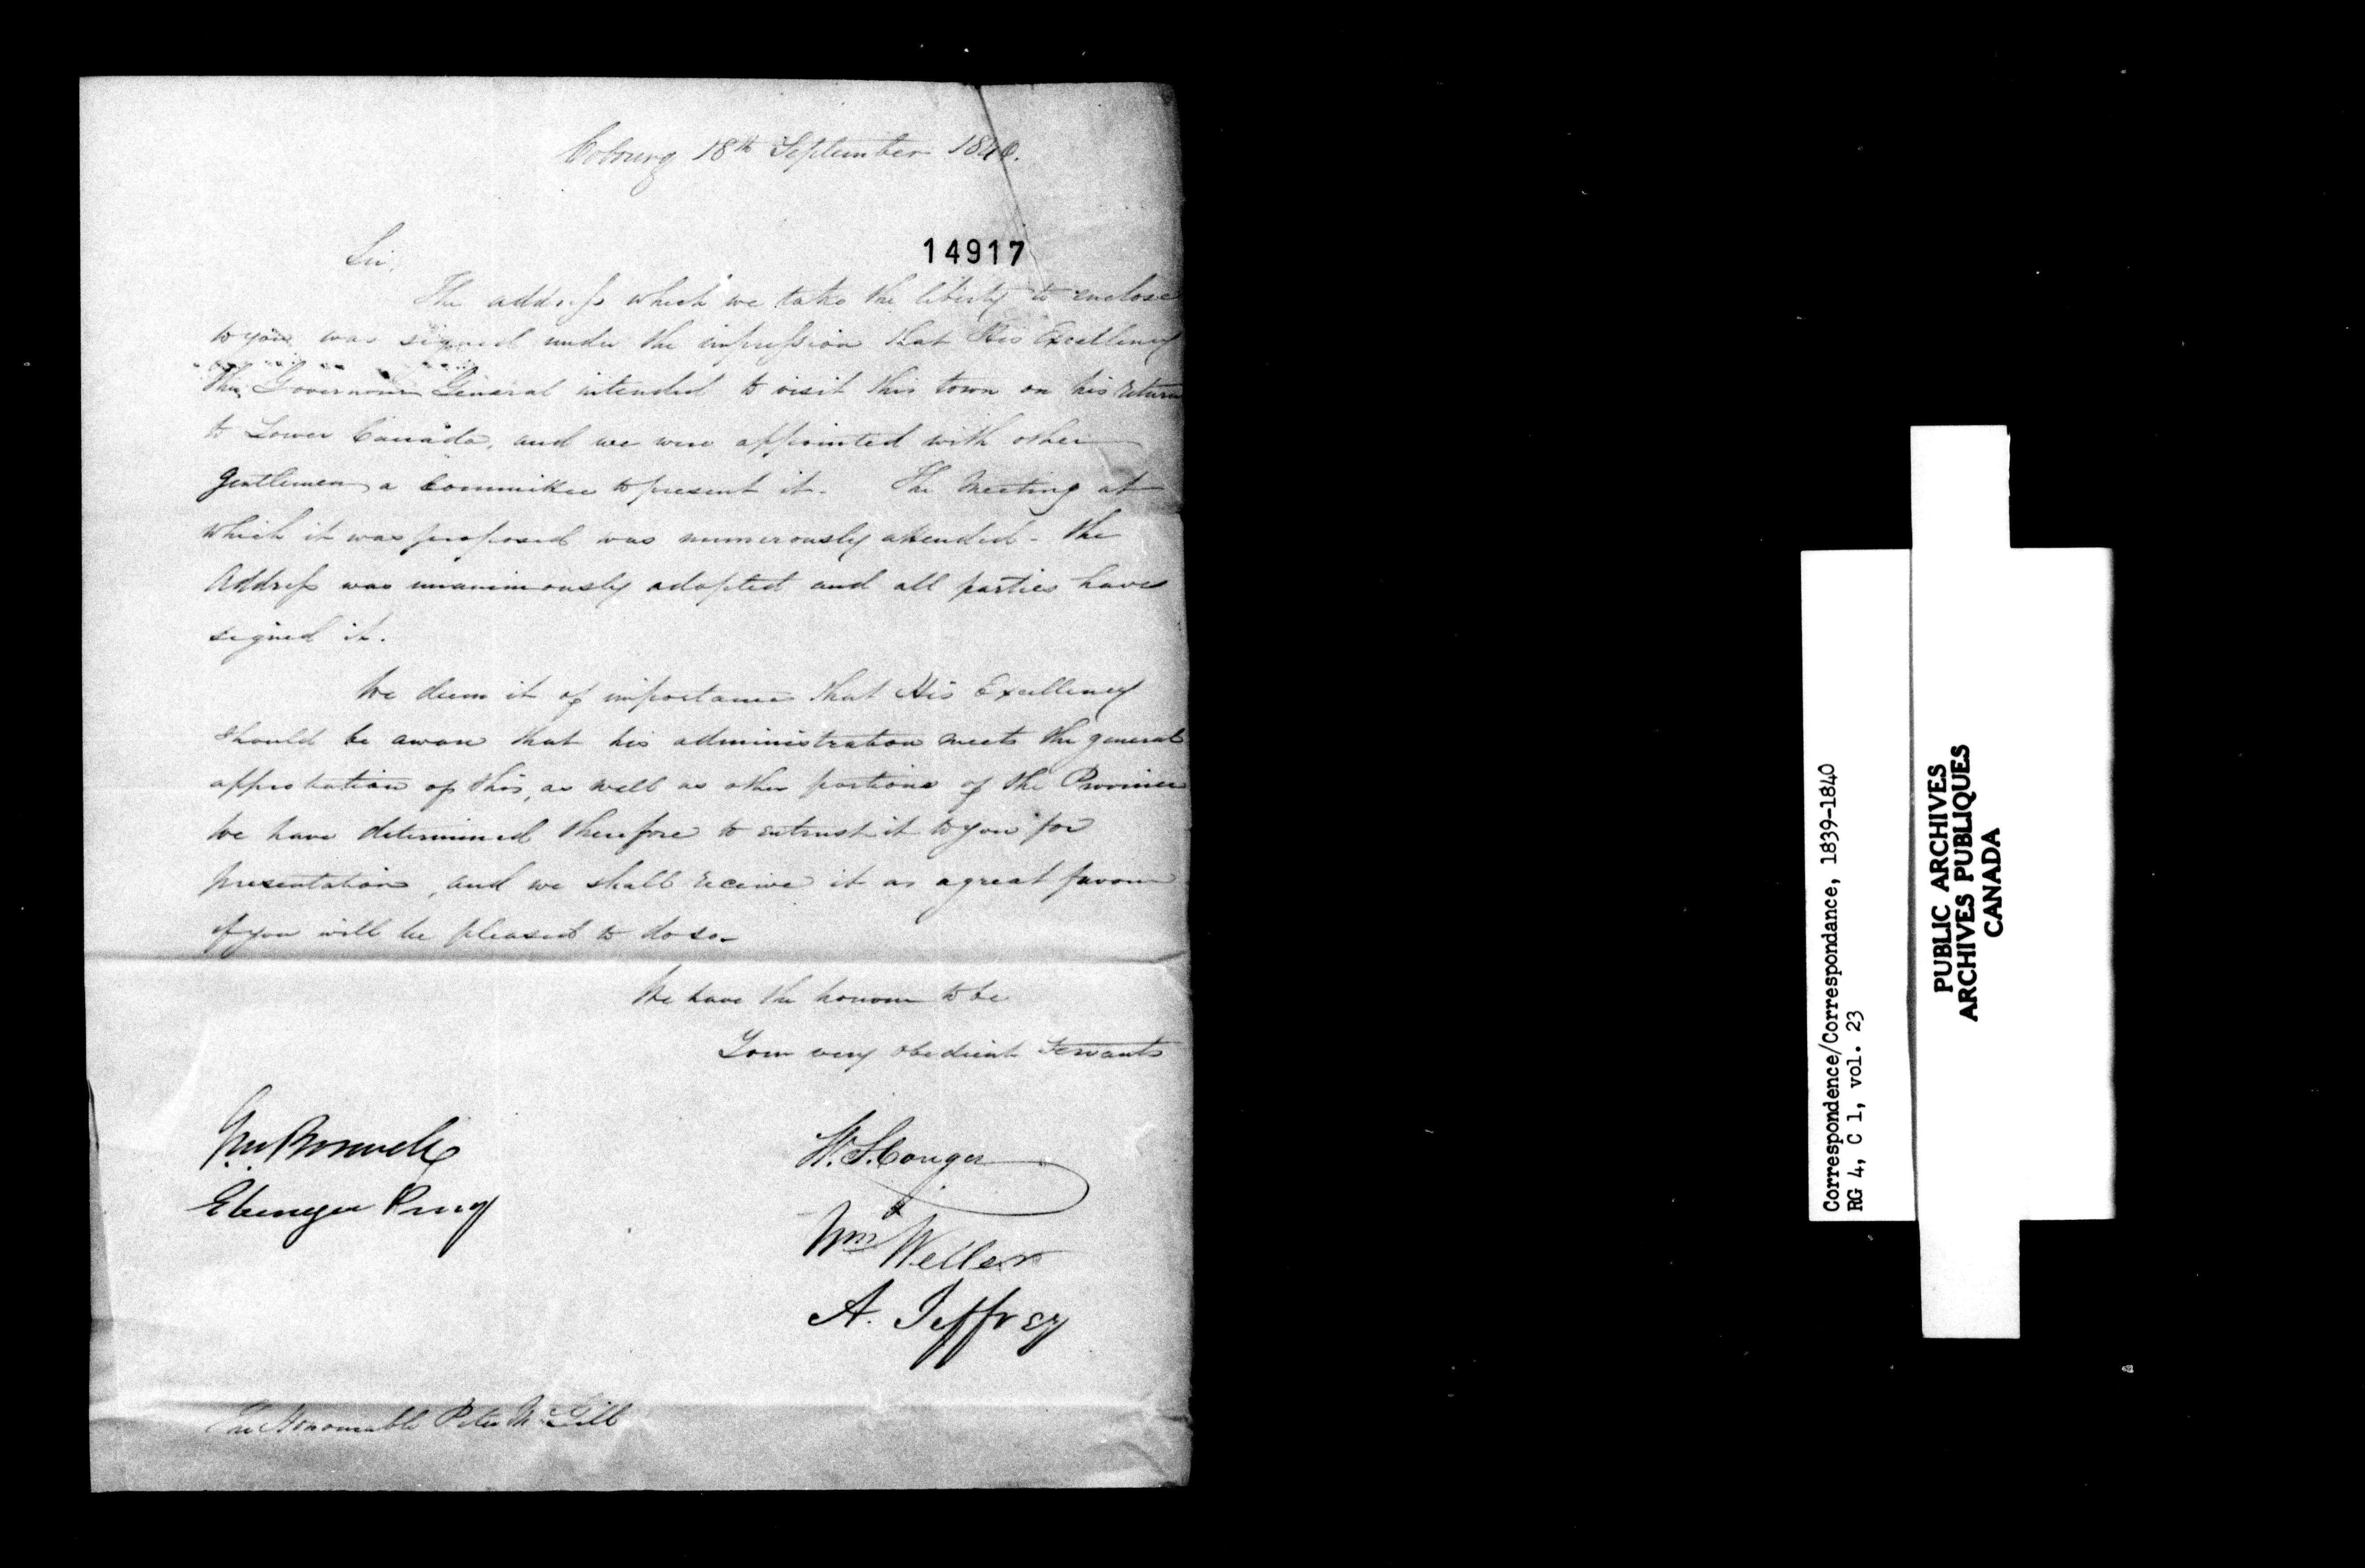 Cobourg 18th September 1840.
14917
Sir,
The address which we take the liberty to enclose
to you was signed under the impression that His Excellency
The Governour General intended to visit this town on his return
to Lower Canada, and we were appointed with other
Gentlemen a Committee to present it. The Meeting at
which it was proposed was numerously attended - the
Address was unanimously adopted and all parties have
signed it.
We deem it of importance that His Excellency
should be aware that his administration meets the general
approbation of this, as well as other portions of the Province
We have determined therefore to entrust it to you for
presentation, and we shall receive it as a great favour
if you will be pleased to do so.
We have the honour to be
Your very obedient Servants
Boswell
Ebenezer Perry
W. S. Conger
Wm Weller
A. Jeffrey
The Honourable Peter McGill
Correspondence/Correspondance, 1839-1840
RG 4, C 1, vol. 23
PUBLIC ARCHIVES
ARCHIVES PUBLIQUES
CANADA